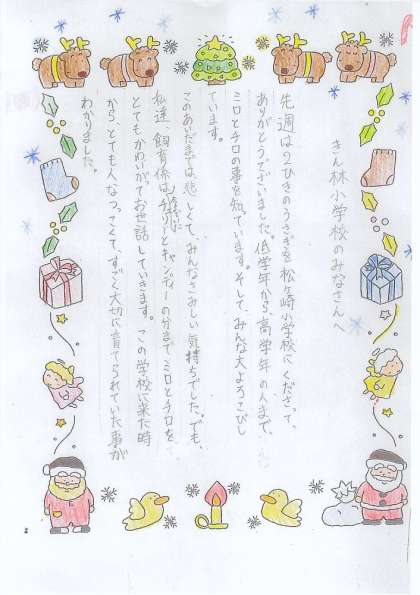 きん林小学校のみなさんへ
先週は2ひきのうさぎを松ヶ崎小学校にくださって、
ありがとうございました。低学年から、高学年の人まで、
ミロとチロの事を知っています。そして、みんな大よろこびし
ています。
このあいだまでは悲しくて、みんなさみしい気持ちでした。でも、
私達、飼育係はチェリーとキャンディーの分までミロとチロを、
とてもかわいがてお世話していきます。この学校に来た時
から、とても人なつっこくて、すごく大切に育てられていた事が
わかりました。